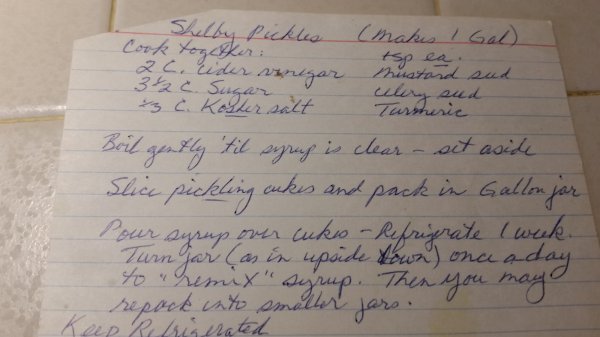 Shelby Pickles (Makes 1 Gal)
Cook together: tsp ea.
2 C. Cider vinegar mustard seed
3 1/2 C. Sugar celery seed
1/3 C. Kosher salt Turmeric
Boil gently 'til syrup is clear - set aside
Slice pickling cukes and pack in Gallon jar
Pour syrup over cukes - Refrigerate 1 week.
Turn jar (as in upside down) once a day
to "remix" syrup. Then you may
repack into smaller jars.
Keep Refrigerated